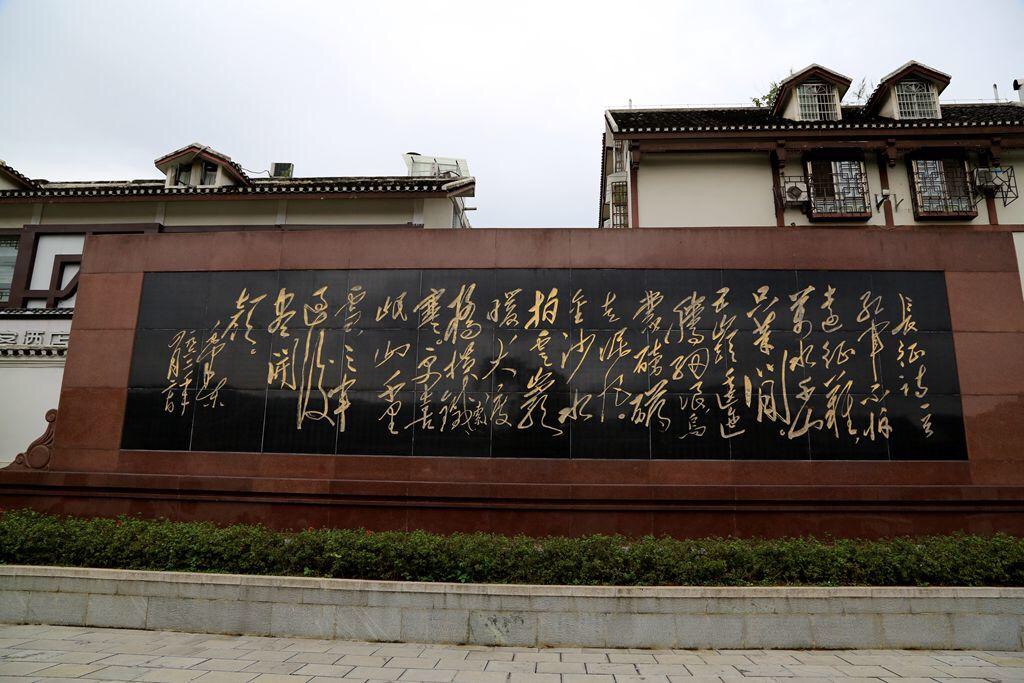 長征詩一首
紅軍不怕
遠征難，
萬水千山
只等閒。
五嶺逶迤
騰細浪，烏
蒙磅礴
走泥丸。
金沙水
拍雲崖
暖，大渡
橋橫鐵索
寒。更喜
岷山千里
雪，三軍
過後
盡開
顏。
毛澤東
客酒店